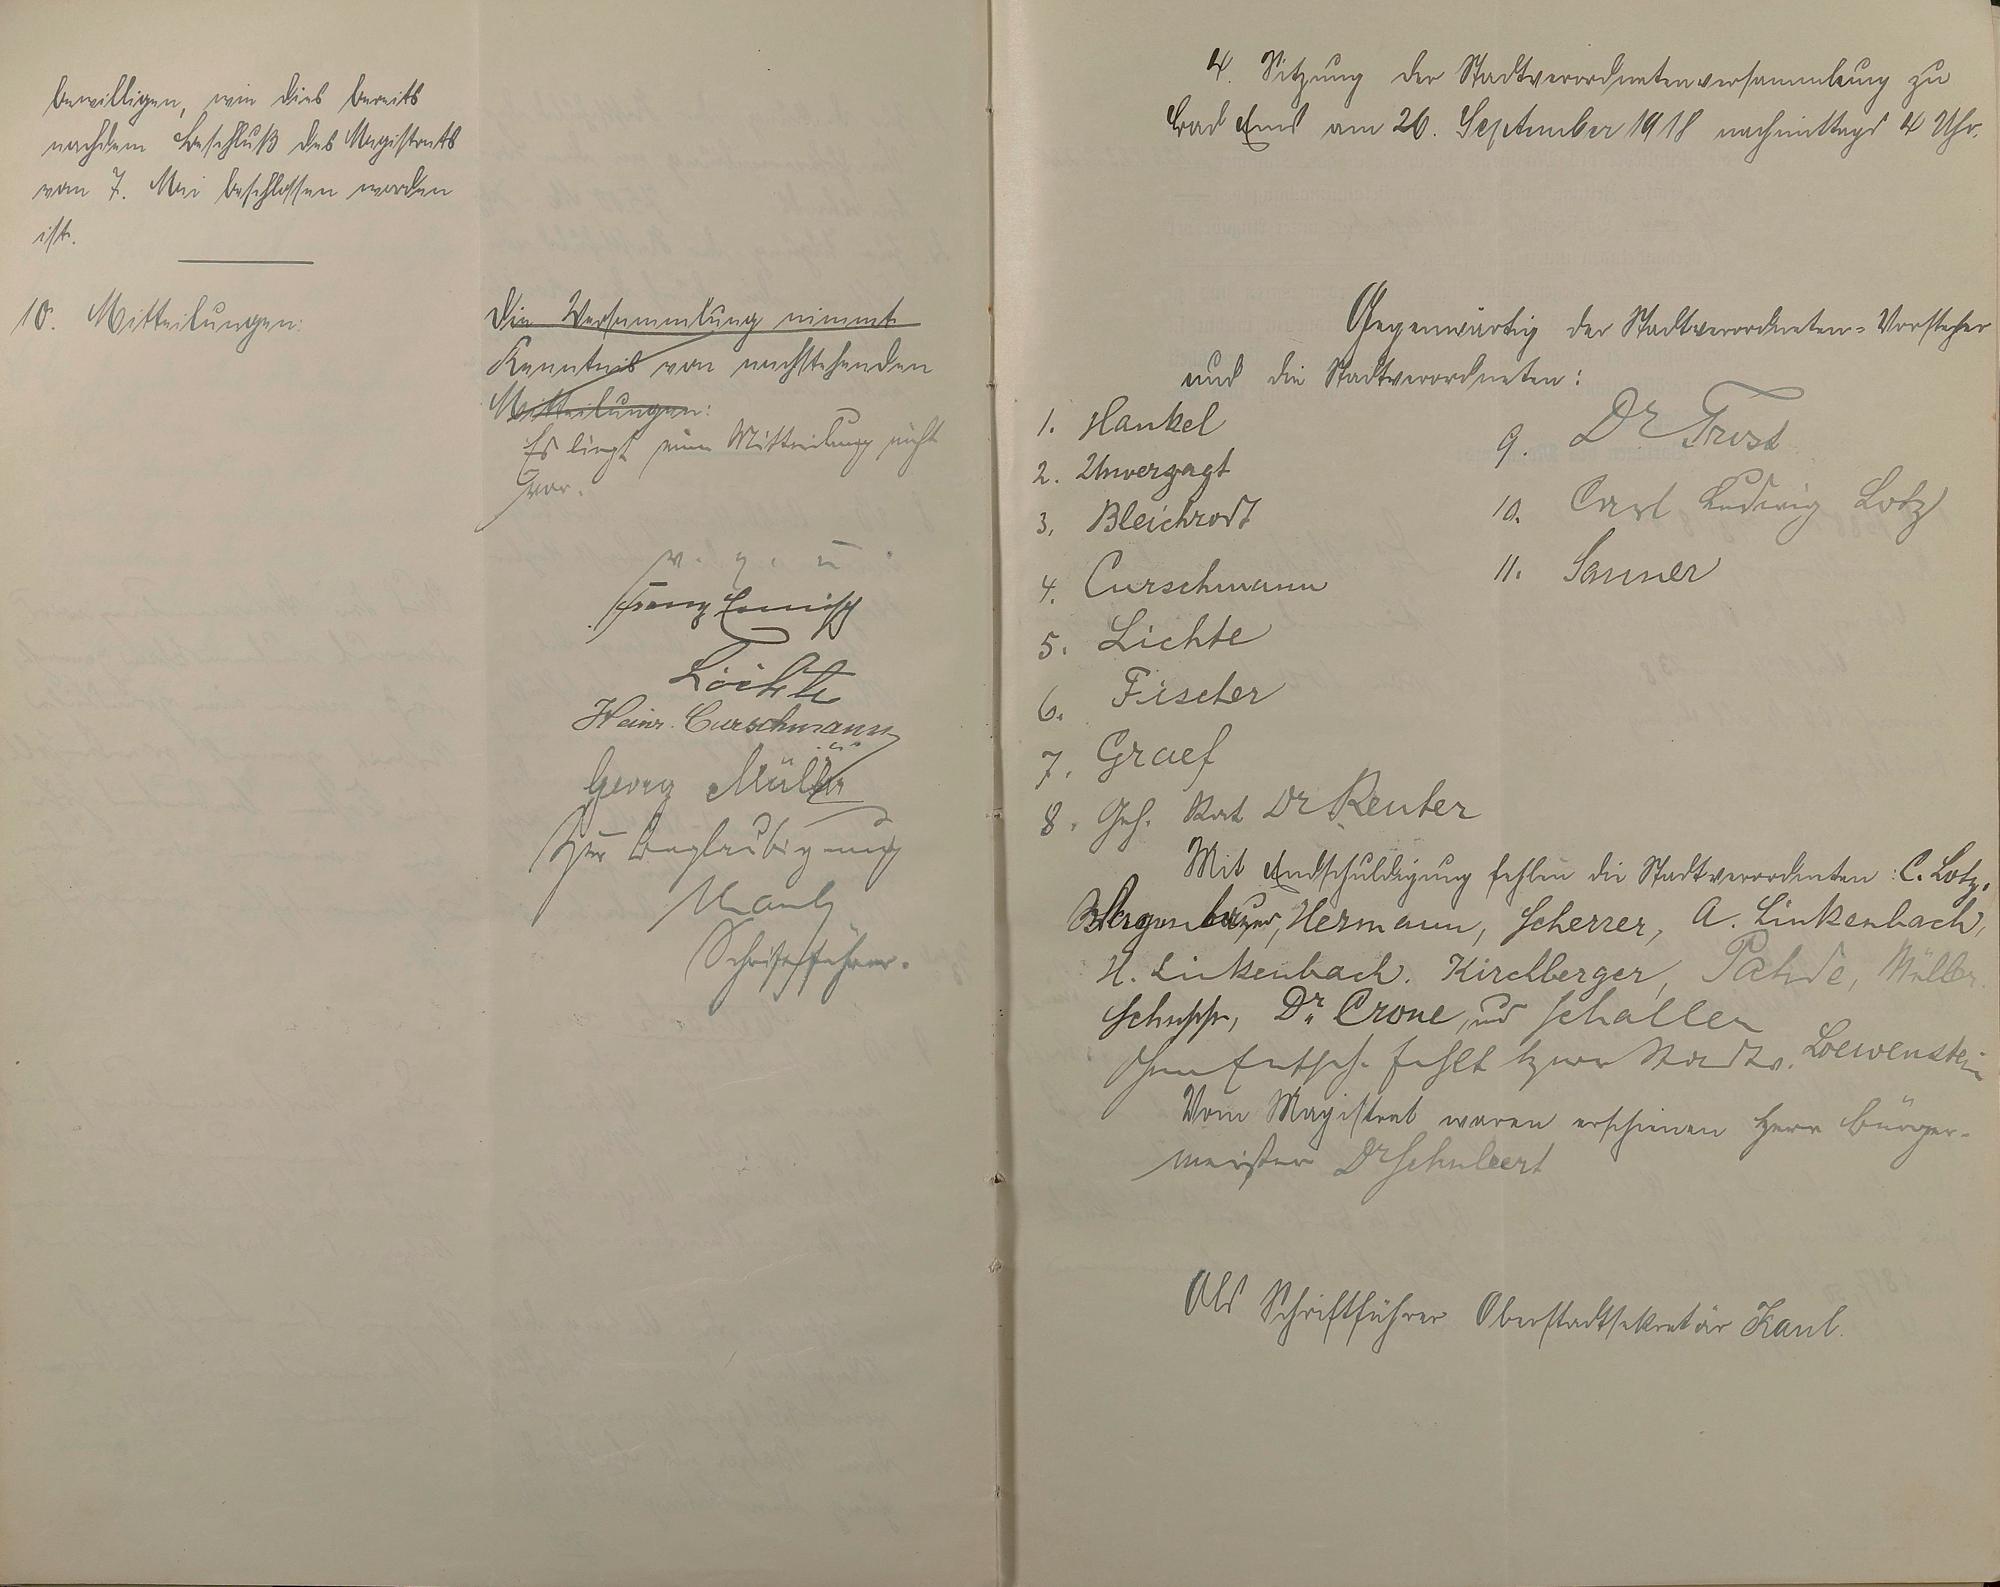 bewilligen, wie dies bereits
nachdem Beschluß des Magistrats
vom 7. Mai beschlossen worden
ist.
10. Mitteilungen:
Die Versammlung nimmt
Kenntnis von nachstehenden
Mitteilungen:
Es liegt eine Mitteilung nicht
vor.
v. g. u.
Franz Ermisch
Löchte
Heinr. Curschmann
Georg Müller
Zur Beglaubigung
Kaul
Schriftführer.
4. Sitzung der Stadtverordnetenversammlung zu
Bad Ems am 26. September 1918 nachmittags 4 Uhr.
Gegenwärtig der Stadtverordneten-Vorsteher
und die Stadtverordneten:
1. Hankel
2. Unverzagt
3. Bleichrodt
4. Curschmann
5. Lichte
6. Fischer
7. Graef
8. Geh. Rat Dr Reuter
9. Dr Trost
10. Carl Ludwig Lotz
11. Sanner
Mit Endschuldigung fehlen die Stadtverordneten: C. Lotz,
Hermann, Scherrer, A. Linkenbach,
H. Linkenbach. Kirchberger, Pahde, Müller
Schupp, Dr. Crone, und Schaller
Ohne Entsch. fehlt Herr Stadtv. Loewenstein
Vom Magistrat waren erschienen Herr Bürger-
meister Dr Schubert
Als Schriftführer Oberstadtsekretär Kaul.